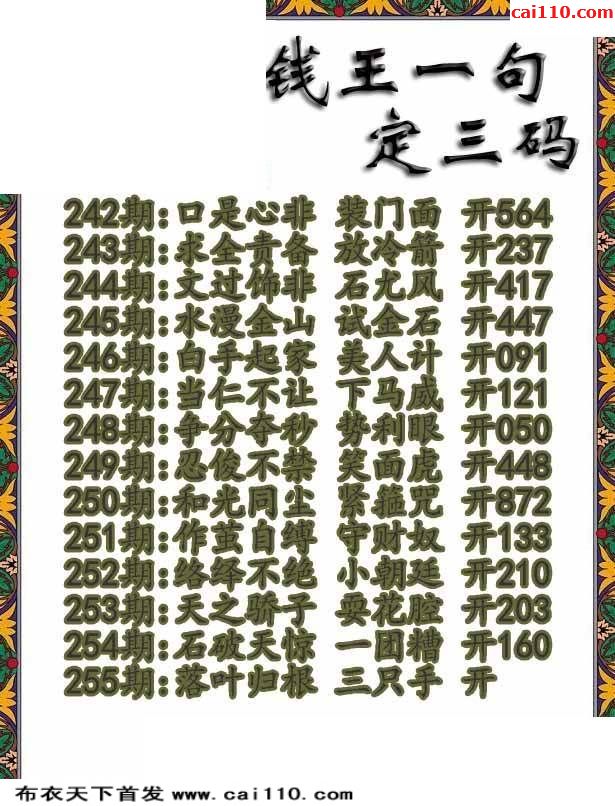 cai110.com
钱王一句
定三码
242期:口是心非 装门面 开564
243期:求全责备 放冷箭 开237
244期:文过饰非 石尤风 开417
245期:水漫金山 试金石 开447
246期:白手起家 美人计 开091
247期:当仁不让 下马威 开121
248期:争分夺秒 势利眼 开050
249期:忍俊不禁 笑面虎 开448
250期:和光同尘 紧箍咒 开872
251期:作茧自缚 守财奴 开133
252期:络绎不绝 小朝廷 开210
253期:天之骄子 耍花腔 开203
254期:石破天惊 一团糟 开160
255期:落叶归根 三只手 开
布衣天下首发 www.cai110.com